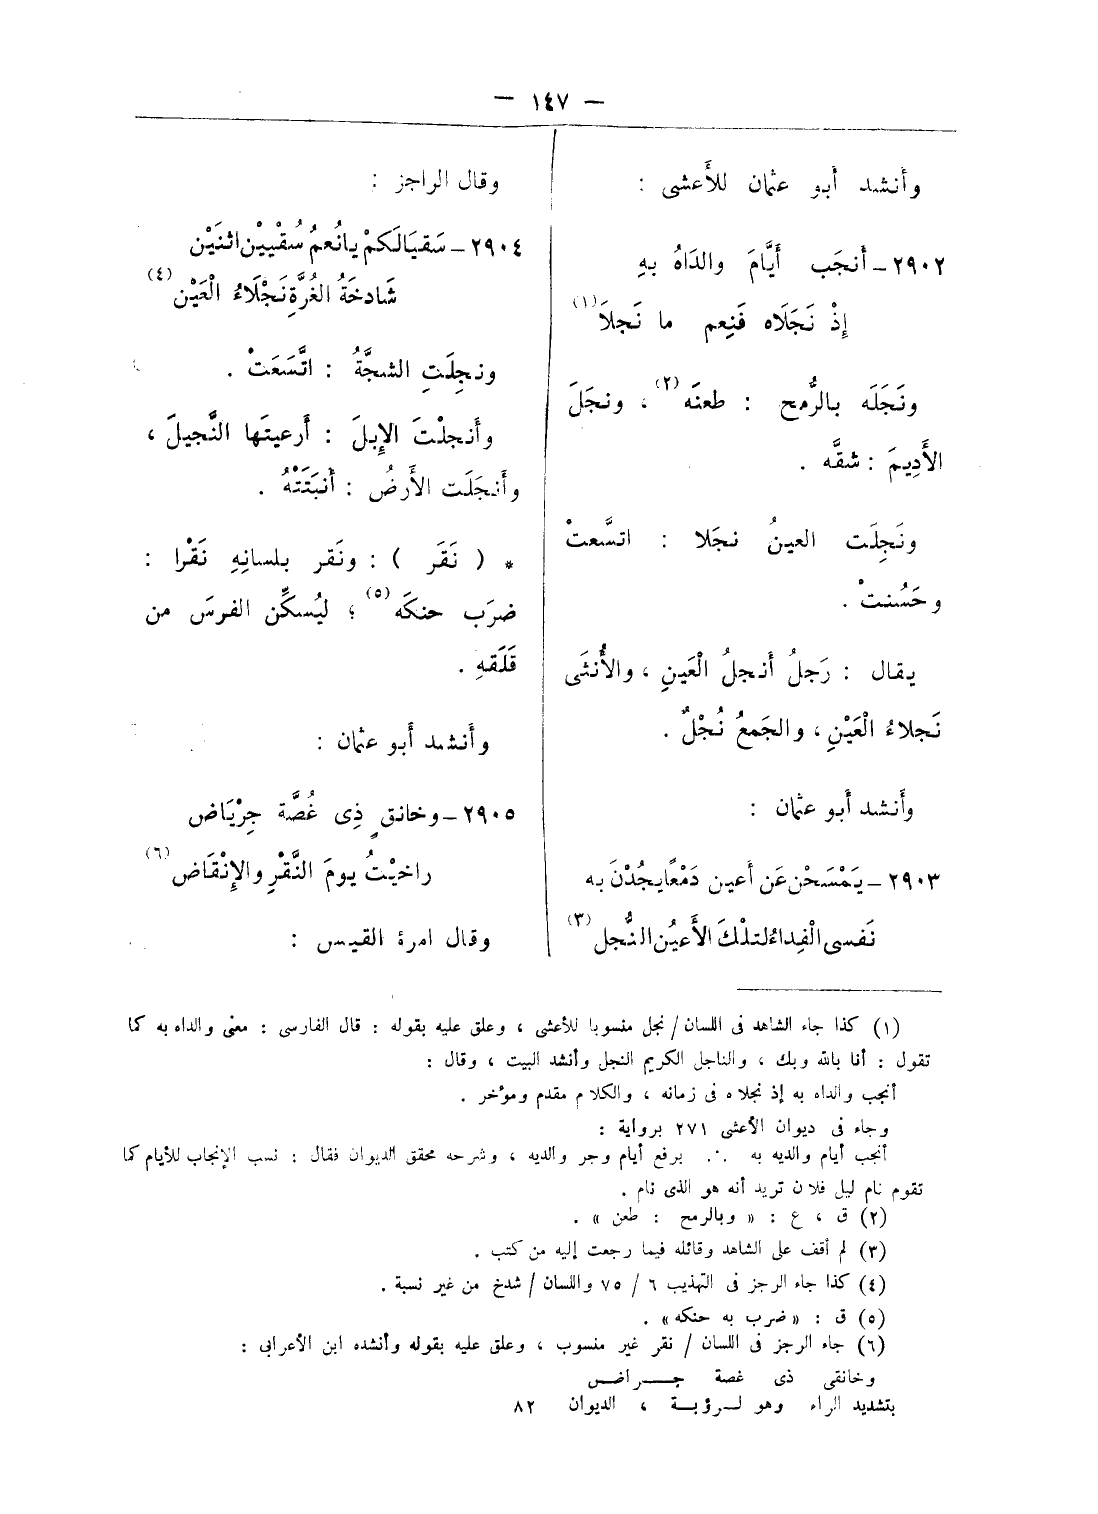 — ١٤٧ —
وأنشد أبو عثمان للأَعشى :
٢٩٠٢ـ أَنجَب أَيَّامَ والدَاهُ بهِ
إِذْ نَجَلَاه فَنِعم ما نَجلَا (١)
ونَجَلَه بالرُّمح : طعنَه (٢) ، ونجَلَ
الأَدِيمَ : شقَّه .
ونَجِلَت العينُ نجَلا : اتسَّعتْ
وحَسُنتْ .
يقال : رَجلُ أَنجلُ الْعَينِ ، والأُنثَى
نَجلاءُ الْعَيْنِ ، والجَمعُ نُجْلٌ .
وأَنشد أَبو عثمان :
٢٩٠٣ـ يَمْسَحْن عَن أَعين دَمْعًا يجُدْنَ به
نَفسى الْفِداءُ لتلْكَ الأَعيُن النُّجل (٣)
وقال الراجز :
٢٩٠٤ـ سَقيَالَكمْ يانُعمُ سُقْيينْ اثنَيْن
شَادخَةُ الغُرَّةِ نَجْلَاءُ الْعَيْن (٤)
ونجِلَتِ الشجَّةُ : اتَّسَعَتْ .
وأَنجلْتَ الإِبلَ : أَرعيتَها النَّجيلَ ،
وأَنجَلَت الأَرضُ : أَنبَتَتْهُ .
* ( نَقَر ) : ونَقر بلسانِهِ نَقْرا :
ضرَب حنكَه (٥) ؛ ليُسكِّن الفرسَ من
قَلَقهِ .
وأَنشد أَبو عثمان :
٢٩٠٥ـ وخانقٍ ذِى غُصَّة جِرْيَاض
راخيْتُ يومَ النَّقْرِ والإِنْقَاض (٦)
وقال امرؤ القيس :
(١) كذا جاء الشاهد فى اللسان / نجل منسوبا للأعشى ، وعلق عليه بقوله : قال الفارسى : معنى والداه به كما
تقول : أنا بالله وبك ، والناجل الكريم النجل وأنشد البيت ، وقال :
أنجب والداه به إذ نجلاه فى زمانه ، والكلام مقدم ومؤخر .
وجاء فى ديوان الأعشى ٢٧١ برواية :
أنجب أيام والديه به .·. برفع أيام وجر والديه ، وشرحه محقق الديوان فقال : نسب الإنجاب للأيام كما
تقوم نام ليل فلان تريد أنه هو الذى نام .
(٢) ق ، ع : « وبالرمح : طعن » .
(٣) لم أقف على الشاهد وقائله فيما رجعت إليه من كتب .
(٤) كذا جاء الرجز فى التهذيب ٦ / ٧٥ واللسان / شدخ من غير نسبة .
(٥) ق : « ضرب به حنكه » .
(٦) جاء الرجز فى اللسان / نقر غير منسوب ، وعلق عليه بقوله وأنشده ابن الأعرابى :
وخانقى ذى غصة جـــراض
بتشديد الراء وهو لـرؤبـة ، الديوان ٨٢